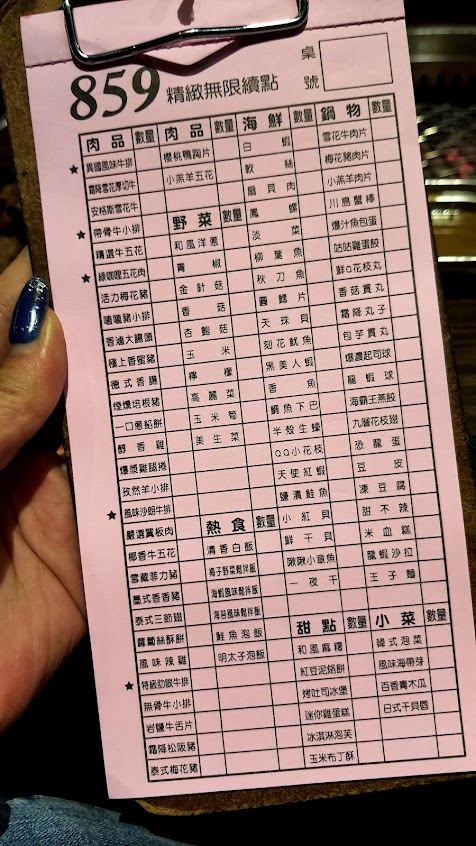 859 精緻無限續點 桌號
肉品 數量
★ 異國風味牛排
霜降雪花厚切牛
安格斯雪花牛
★ 帶骨牛小排
精選牛五花
★ 綠咖哩五花肉
活力梅花豬
嘴嘴豬小排
香滷大腸頭
極上香蜜豬
德式香腸
煙燻培根豬
一口蔥餡餅
醇香雞
爆漿雞腿捲
孜然羊小排
★ 風味沙朗牛排
嚴選翼板肉
椰香牛五花
雪藏菲力豬
墨式香香豬
泰式三節翅
蘿蔔絲酥餅
風味辣雞
★ 特級肋眼牛排
無骨牛小排
岩鹽牛舌片
霜降松阪豬
泰式梅花豬
肉品 數量
櫻桃鴨胸片
小羔羊五花
野菜 數量
和風洋蔥
青椒
金針菇
香菇
杏鮑菇
玉米
檸檬
高麗菜
玉米筍
美生菜
熱食 數量
清香白飯
梅子野菜鬆拌飯
海蝦風味鬆拌飯
海苔風味鬆拌飯
鮭魚泡飯
明太子泡飯
海鮮 數量
白蝦
軟絲
扇貝肉
鳳螺
淡菜
柳葉魚
秋刀魚
圓鱈片
天珠貝
刻花魷魚
黑美人蝦
香魚
鯛魚下巴
半殼生蠔
QQ小花枝
天使紅蝦
鹽漬鮭魚
小紅貝
鮮干貝
啾啾小章魚
一夜干
甜點 數量
和風麻糬
紅豆泥烙餅
烤吐司冰堡
迷你雞蛋糕
冰淇淋泡芙
玉米布丁酥
鍋物 數量
雪花牛肉片
梅花豬肉片
小羔羊肉片
川島蟹棒
爆汁魚包蛋
咕咕雞蛋餃
鮮Q花枝丸
香菇貢丸
霜降丸子
包芋貢丸
爆濃起司球
龍蝦球
海霸王燕餃
九層花枝翅
恐龍蛋
豆皮
凍豆腐
甜不辣
米血糕
龍蝦沙拉
王子麵
小菜 數量
韓式泡菜
風味海帶芽
百香青木瓜
日式干貝唇